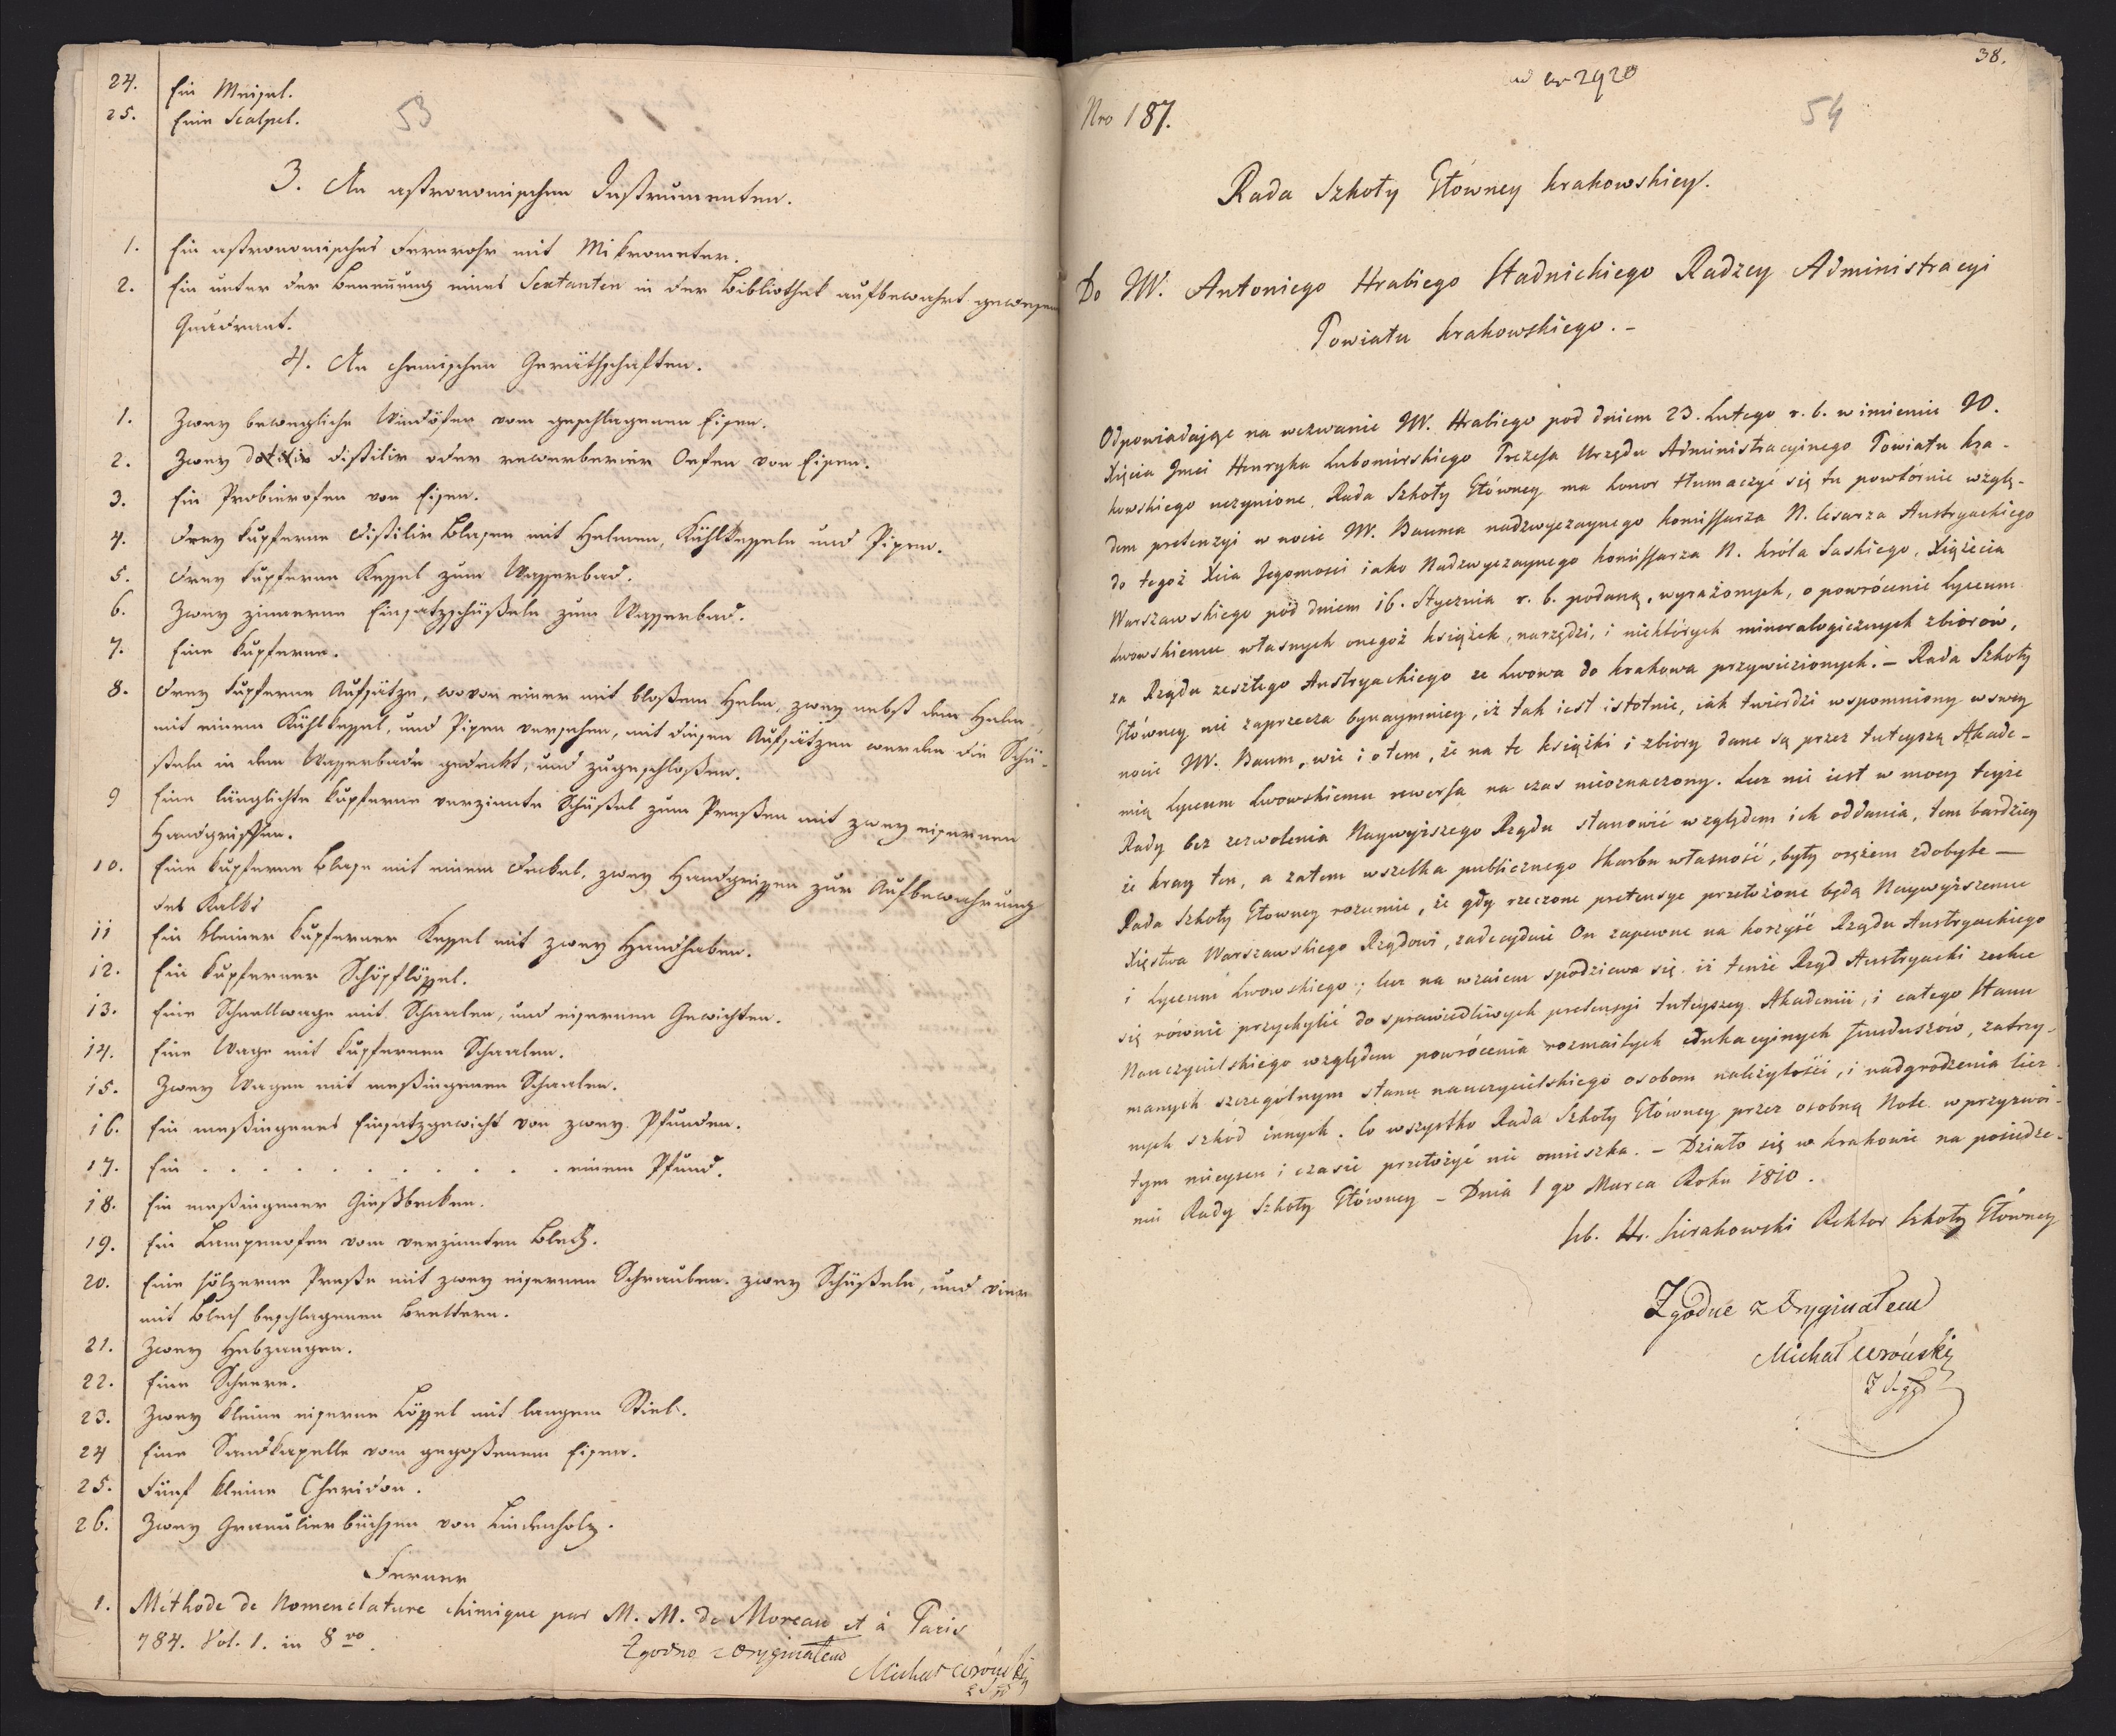 24. Ein Meißel.
25. Eine Scalpel.
53
3. An astronomischen Instrumenten.
1. Ein astronomisches Fernrohr mit Mikrometer.
2. Ein unter der Benennung eines Sextanten in der Bibliothek aufbewahrt gewesener
Quadrant.
4. An chemischen Geräthschaften.
1. Zwey bewegliche Windöfen vom geschlagenen Eisen.
2. Zwey distilir oder reverberier Oefen von Eisen.
3. Ein Probierofen von Eisen.
4. Drey kupferne Distilir Blasen mit Helmen, Kühlkesseln und Pipen.
5. Drey kupferne Kessel zum Wasserbad.
6. Zwey zinnerne Einsatzschüßeln zum Wasserbad.
7. Eine kupferne.
8. Drey kupferne Aufsätze, wovon einer mit bloßem Helm, zwey nebst dem Helm
mit einem Kühlkessel, und Pipen versehen, mit diesen Aufsätzen werden die Schü-
ßeln in dem Wasserbade gedeckt, und zugeschloßen.
9 Eine länglichte kupferne verzinnte Schüßel zum Preßen mit zwey eisernen
Handgriffen.
10. Eine kupferne Blase mit einem Deckel, zwey Handgriffen zur Aufbewahrung
des Kalks
11 Ein kleiner kupferner Kessel mit zwey Handhaben.
12. Ein kupferner Schöpflöffel.
13. Eine Schnellwage mit Schaalen, und eisernen Gewichten.
14. Eine Wage mit kupfernen Schaalen.
15. Zwey Wagen mit meßingenen Schaalen.
16. Ein meßingenes Einsatzgewicht von zwey Pfunden.
17. Ein . . . . . . . . . . . . einem Pfund.
18. Ein meßingener Gießbecken.
19. Ein Lampenofen vom verzinnten Blech.
20. Eine hölzerne Preße mit zwey eisernen Schrauben, zwey Schüßeln, und vier
mit Blech beschlagenen Brettern.
21. Zwey Hebzangen.
22. Eine Scheere.
23. Zwey kleine eiserne Löffel mit langem Stiel.
24 Eine Sandkapelle vom gegoßenem Eisen.
25. Fünf kleine Cheridon.
26. Zwey Granulierbüchsen von Lindenholz.
Ferner
1. Méthode de Nomenclature chimique par M. M. de Moreau et à Paris
784. Vol. 1. in 8vo.
Zgodno z Oryginałem
Michał Wroński
38.
ad Nr 2920
54
Nro 187.
Rada Szkoły Główney Krakowskiey.
Do W. Antoniego Hrabiego Stadnickiego Radzcy Administracyi
Powiatu Krakowskiego. -
Odpowiadając na wezwanie W. Hrabiego pod dniem 23. Lutego r. b. w imieniu JO.
Xięcia Jmci Henryka Lubomirskiego Prezesa Urzędu Administracyinego Powiatu Kra-
kowskiego uczynione, Rada Szkoły Główney ma honor tłumaczyć się tu powtórnie wzglę-
dem pretenzyi w nocie W. Bauma nadzwyczaynego Kommissarza N. Cesarza Austryackiego
do tegoż Xcia Jegomości iako Nadzwyczaynego Kommissarza N. Króla Saskiego, Xiążęcia
Warszawskiego pod dniem 16. Stycznia r. b. podaną, wyrażonych, o powrócenie Lyceum
Lwowskiemu własnych onegoż książek, narzędzi, i niektórych mineralogicznych zbiorów,
za Rządu zeszłego Austryackiego ze Lwowa do Krakowa przywiezionych. - Rada Szkoły
Główney nie zaprzecza bynaymniey, iż tak iest istotnie, iak twierdzi wspomniony w swey
nocie W. Baum, wie i o tem, że na te książki i zbiory dane są przez tuteyszą Akade-
mią Lyceum Lwowskiemu rewersa na czas nieoznaczony. Lecz nie iest w mocy teyże
Rady bez zezwolenia Naywyższego Rządu stanowić względem ich oddania, tem bardziey
że kray ten, a zatem wszelka publicznego Skarbu własność, były orężem zdobyte —
Rada Szkoły Główney rozumie, że gdy rzeczone pretensye przełożone będą Naywyższemu
Xięstwa Warszawskiego Rządowi, zadecyduie On zapewne na korzyść Rządu Austryackiego
i Lyceum Lwowskiego; lecz na wzaiem spodziewa się iż tenże Rząd Austryacki zechce
się równie przychylić do sprawiedliwych pretensyi tuteyszey Akademii, i całego Stanu
Nauczycielskiego względem powrócenia rozmaitych edukacyinych funduszów, zatrzy-
manych szczególnym stanu nauczycielskiego osobom należytości, i nadgrodzenia licz-
nych szkód innych. Co wszystko Rada Szkoły Główney przez osobną Notę w przyzwoi-
tym mieyscu i czasie przełożyć nie omieszka. - Działo się w Krakowie na posiedze-
niu Rady Szkoły Główney - Dnia 1go Marca Roku 1810.
Seb. Hr. Sierakowski Rektor Szkoły Główney
Zgodne z Oryginałem
Michał Wroński